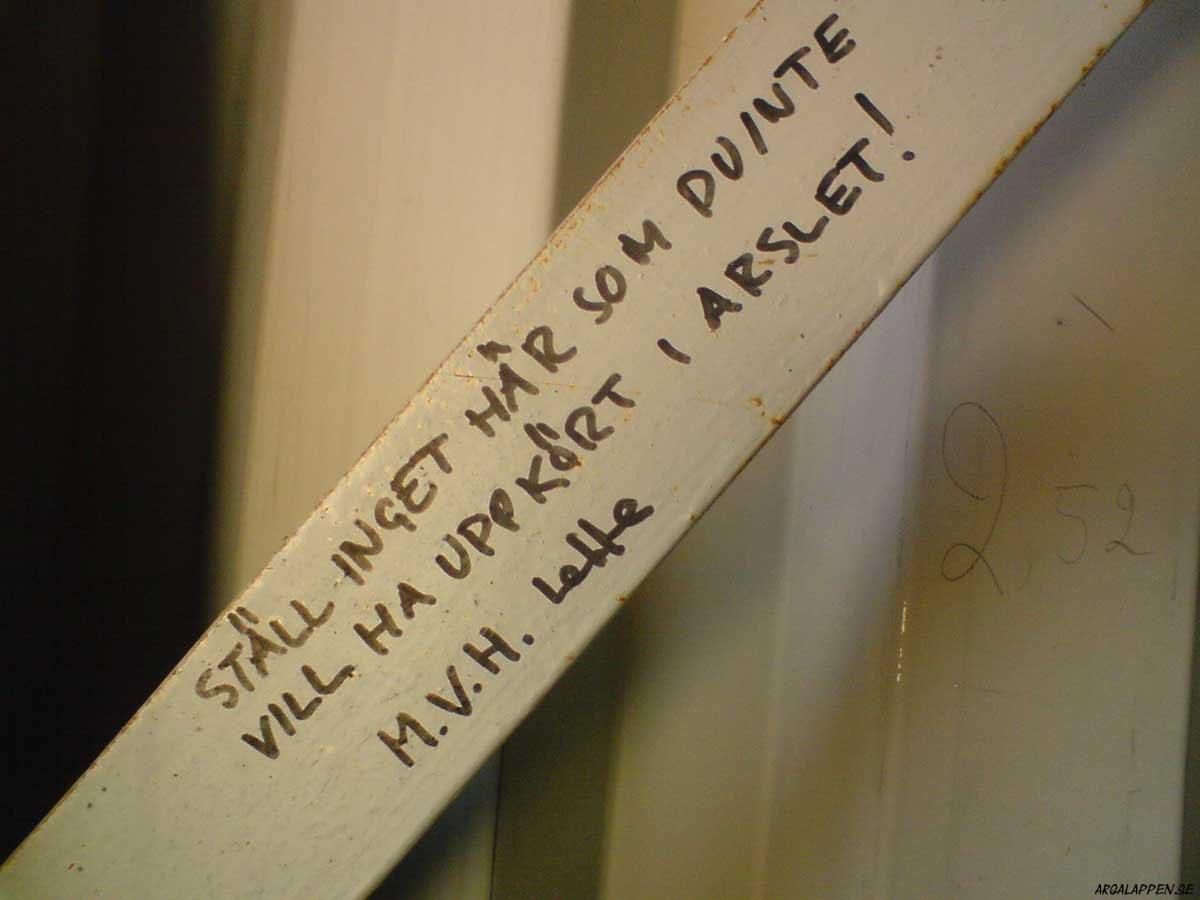 STÄLL INGET HÄR SOM DU INTE
VILL HA UPPKÖRT I ARSLET!
M.V.H. Leffe
2,52
ARGALAPPEN.SE